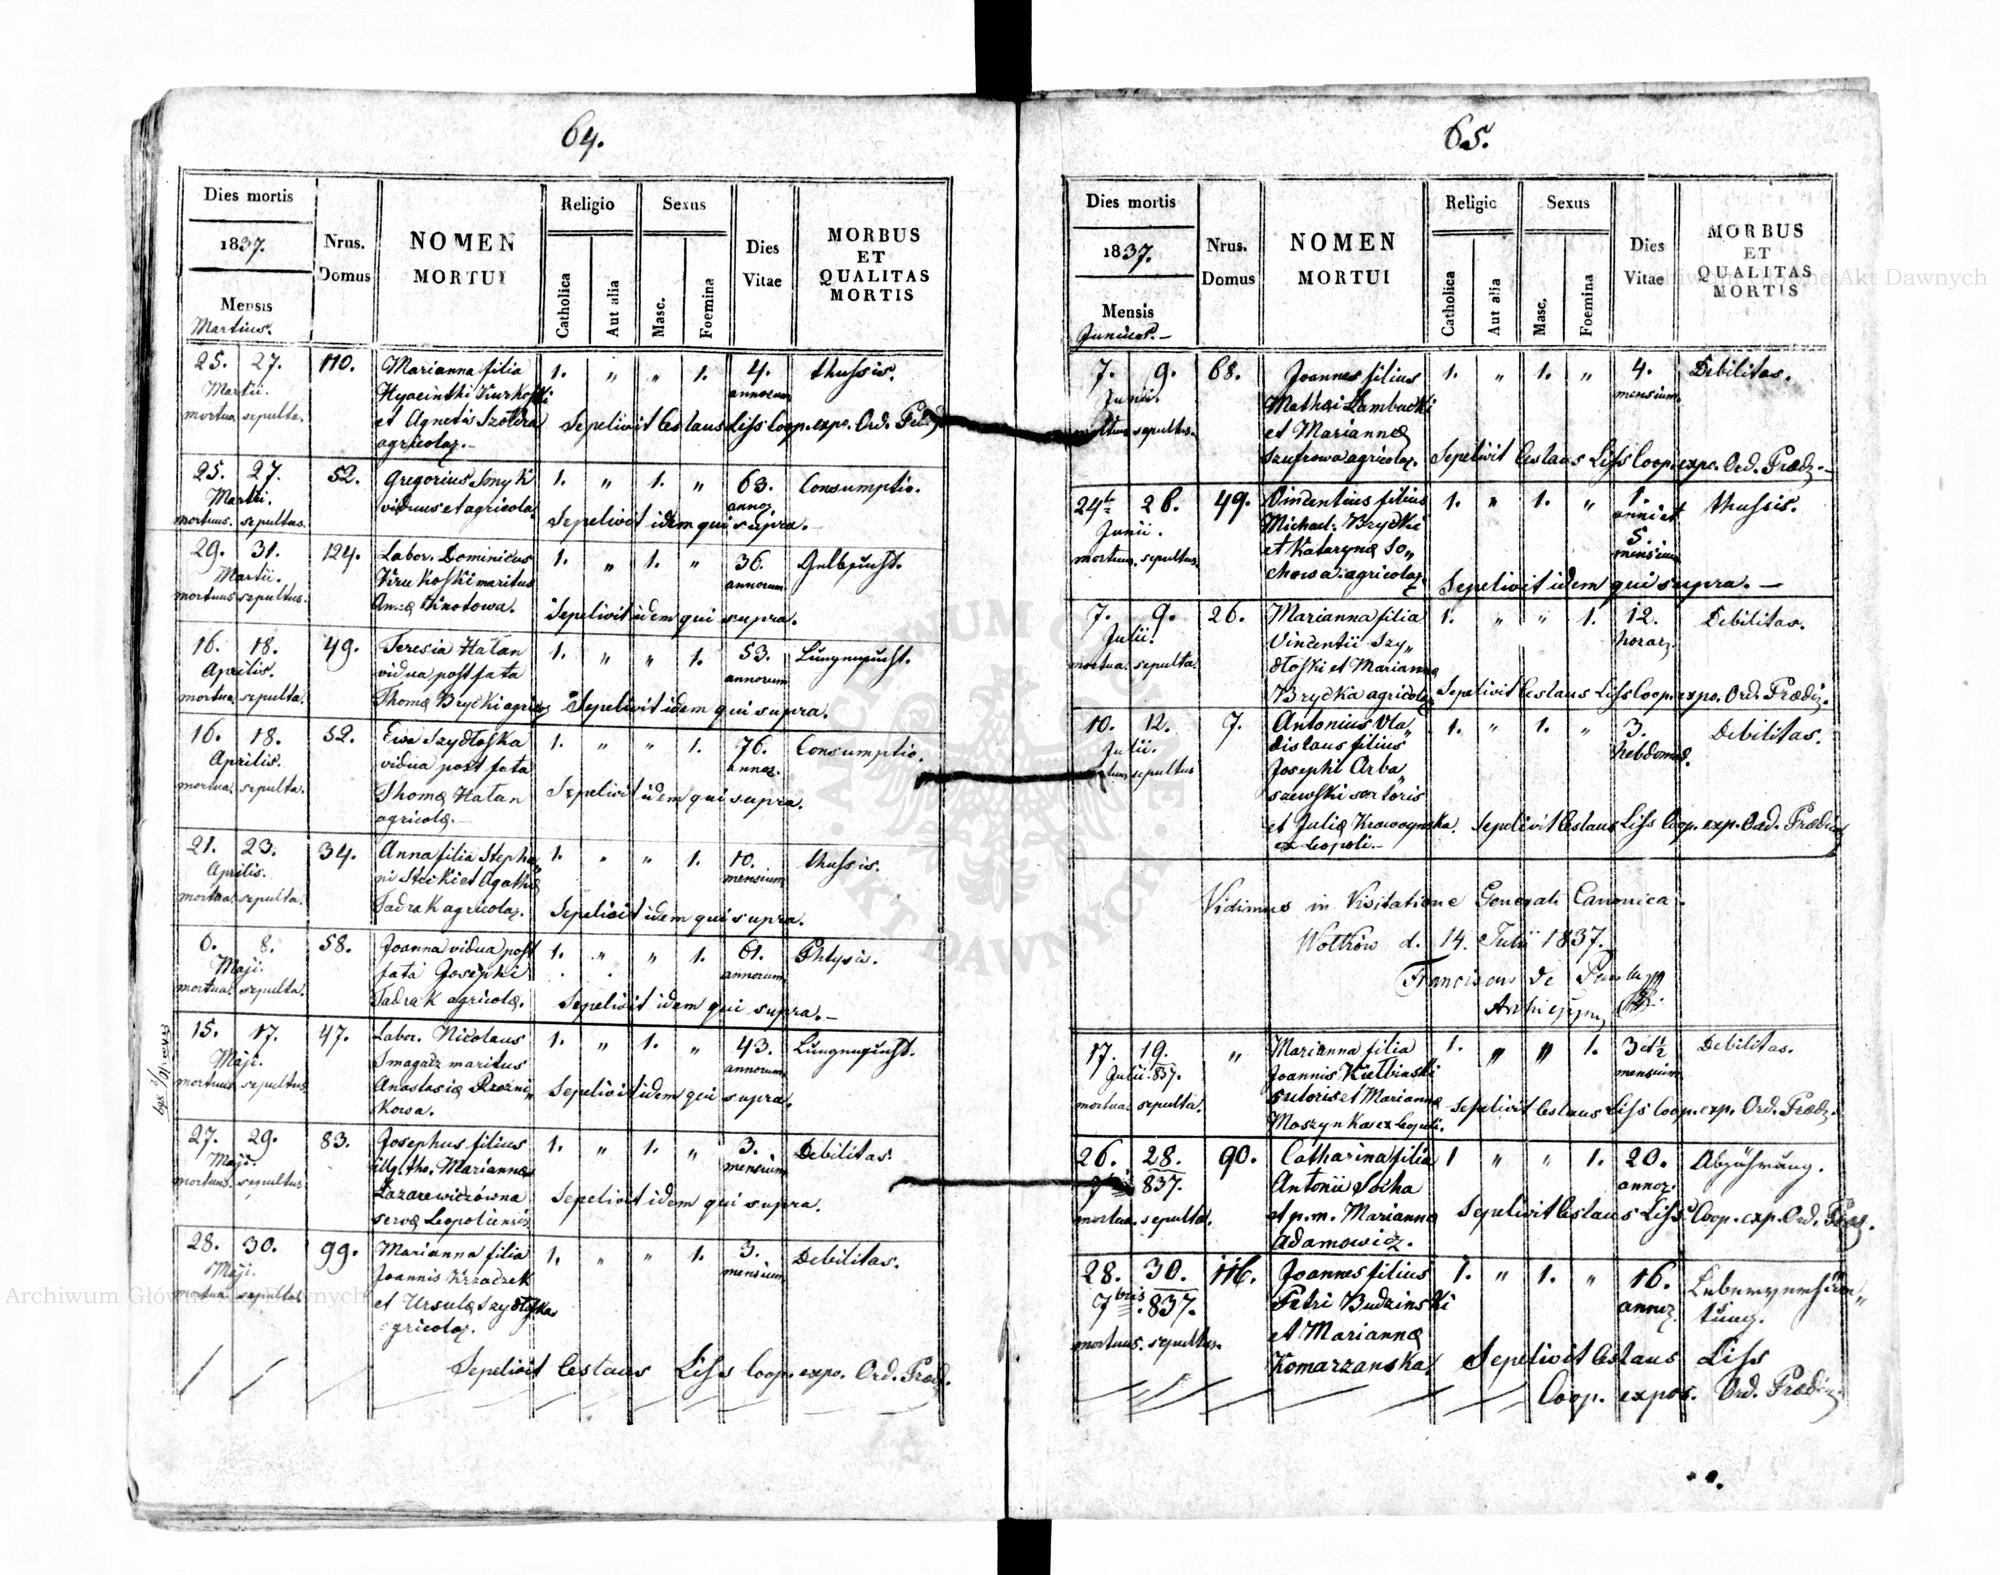 64.
Dies mortis
1837.
Mensis
Martius.
Nrus. Domus
NOMEN MORTUI
Religio
Catholica
Aut alia
Sexus
Masc.
Foemina
Dies Vitae
MORBUS
ET
QUALITAS
MORTIS
25. 27. 110. Marianna filia 1. " " 1. 4. thussis.
Martii. Hyacinthi annorum
mortua sepulta. et Agnetis Szoldra Sepelivit Ceslaus Liss Coop. expo. Ord. Præd.
agricolaz.
25. 27. 52. Gregorius Smyk 1. " 1. " 63. Consumptio.
Martii. viduus et agricola annoz.
mortuus. sepultus. Sepelivit idem qui supra.
29. 31. 124. Labor. Dominicus 1. " 1. " 36. Gelbsucht.
Martii. Krukoski maritus annorum
mortuus sepultus. Annæ Knotowa. Sepelivit idem qui supra.
16. 18. 49. Teresia Hatan 1. " " 1. 53. Lungensucht.
Aprilis. vidua post fata annorum
mortua sepulta. Thomæ Brycki agricolaz Sepelivit idem qui supra.
16. 18. 52. Ewa Szydłoska 1. " " 1. 76. Consumptio.
Aprilis. vidua post fata annoz.
mortua. sepulta. Thomæ Hatan Sepelivit idem qui supra.
agricolæ.
21. 23. 34. Anna filia Stepha 1. " " 1. 10. thussis.
Aprilis. ni Stecki et Agathæ mensium
mortua sepulta. Tadrak agricolaz. Sepelivit idem qui supra.
6. 8. 58. Joanna vidua post 1. " " 1. 61. Phtysis.
Maji. fata Josephi annorum
mortua. sepulta. Tadrak agricolæ. Sepelivit idem qui supra.
15. 17. 47. Labor. Nicolaus 1. " 1. " 43. Lungensucht.
Maji. Smagacz maritus annorum
mortuus sepultus. Anastasiæ Rzezni" Sepelivit idem qui supra.
kowa.
27. 29. 83. Josephus filius 1. " 1. " 3. Debilitas.
Maji. illg. tho. Mariannæ mensium
mortuus. sepultus Łazarewiczówna Sepelivit idem qui supra.
servæ Leopoliensis
28. 30. 99. Marianna filia 1. " " 1. 3. Debilitas.
Maji. Joannis Krzaczek mensium
mortua. sepulta. et Ursulæ Szydłoska
agricolaz.
Sepelivit Ceslaus Liss Coop. expo. Ord. Præd.
65.
Dies mortis
1837.
Mensis
Junius.
Nrus. Domus
NOMEN MORTUI
Religio
Catholica
Aut alia
Sexus
Masc.
Foemina
Dies Vitae
MORBUS
ET
QUALITAS
MORTIS
7. 9. 68. Joannes filius 1. " 1. " 4. Debilitas.
Junii. Mathæi Lambucki mensium
sepultus. et Mariannæ
Szufrowa agricolaz. Sepelivit Ceslaus Liss Coop. expo. Ord. Prædz.
24t 26. 49. Vincentius filius 1. " 1. " 1. thussis.
Junii. Michael. Brycki anni et
mortuus. sepultus. et Katarynæ So" 5. mensium
chowa. agricolaz. Sepelivit idem qui supra.
7. 9. 26. Marianna filia 1. " " 1. 12. Debilitas.
Julii. Vincentii Szy" horarz.
mortua. sepulta. dłoski et Mariannæ
Brycka agricolaz Sepelivit Ceslaus Liss Coop. expo. Ord. Prædiz.
10. 12. 7. Antonius Vla" 1. " 1. " 3. Debilitas.
Julii. dislaus filius hebdomad.
sepultus Josephi Arba"
szewski sartoris
et Juliæ Sepelivit Ceslaus Liss Coop. exp. Ord. Prædica
ex Leopoli.
Vidimus in Visitatione Generali Canonica
Wołków d. 14. Julii 1837.
Franciscus de
17. 19. " Marianna filia 1. " " 1. 3 et 1/2 Debilitas.
Julii. 837. Joannis Kiełbinski mensium
mortua. sepulta. sutoris et Mariannæ Sepelivit Ceslaus Liss Coop. exp. Ord. Prædz.
Moszynka ex Leopoli.
26. 28. 90. Catharina filia 1 " " 1. 20. Abzöhrung.
837. Antonii Socha annoz.
mortua. sepulta. et p.m. Mariannæ Sepelivit Ceslaus Liss Coop. exp. Ord. Præd.
Adamowicz.
28. 30. 116. Joannes filius 1. " 1. " 16.
7bris 837. Petri Budzinski annoz.
mortuus. sepultus. et Mariannæ tung.
Komarzanska Sepelivit Ceslaus Liss
Coop. expos. Ord. Prædiz.
Archiwum Główne Akt Dawnych
ARCHIWUM GŁÓWNE AKT DAWNYCH